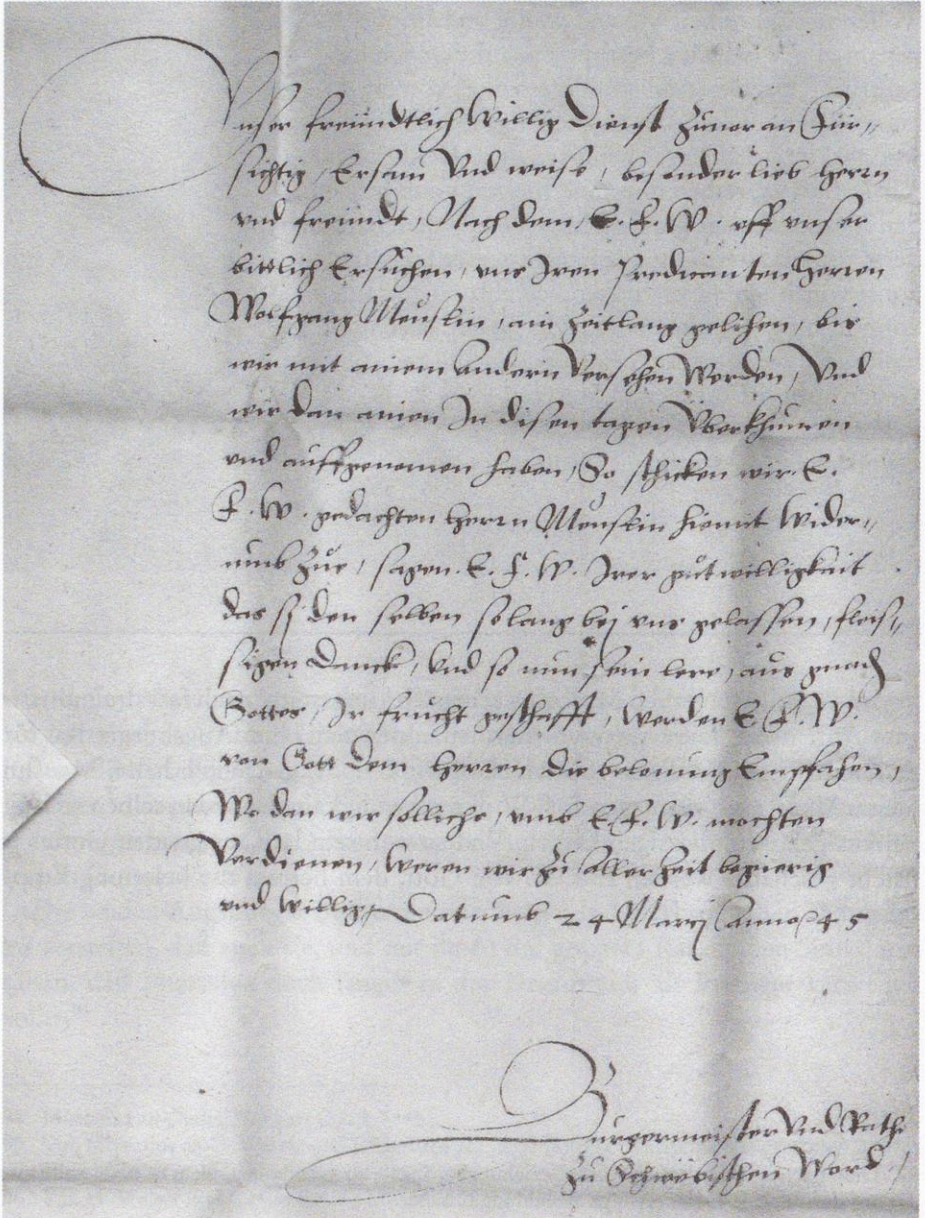 Unser freündtlich willig Dienst zuuor an Für„
sichtig, Ersam Vnd weise, besonder lieb herrn
vnd freündt, Nach dem, E. F. W. vff vnser
bittlich Ersuchen, vns Iren predicanten Herren
Wolfgang Meuslin, ain Zeitlang gelihen, bis
wir mit ainem Andern Versehen Werden, Vnd
wir dan ainen In disen tagen Vberkhumen
vnd auffgenomen haben, So schicken wir. E.
F. W. gedachten herrn Meuslin hiemit Wider„
umb Zue, sagen. E. F. W. Irer gutwilligkait
das sy den selben so lang bey vns gelassen, fleis„
sigen Danck, Vnd so nun sein lere, aus gnad
Gottes, Ir frucht geschafft, werden E. F. W.
von Gott dem herren die belonung Empfahen,
Wo dan wir solliche, vmb E. F. W. mochten
Verdienen, weren wir Zu aller Zeit begierig
vnd willig, Datumb 24 Marcij Anno 45
Burgermeister Vnd Rathe
Zu Schwebischen Word